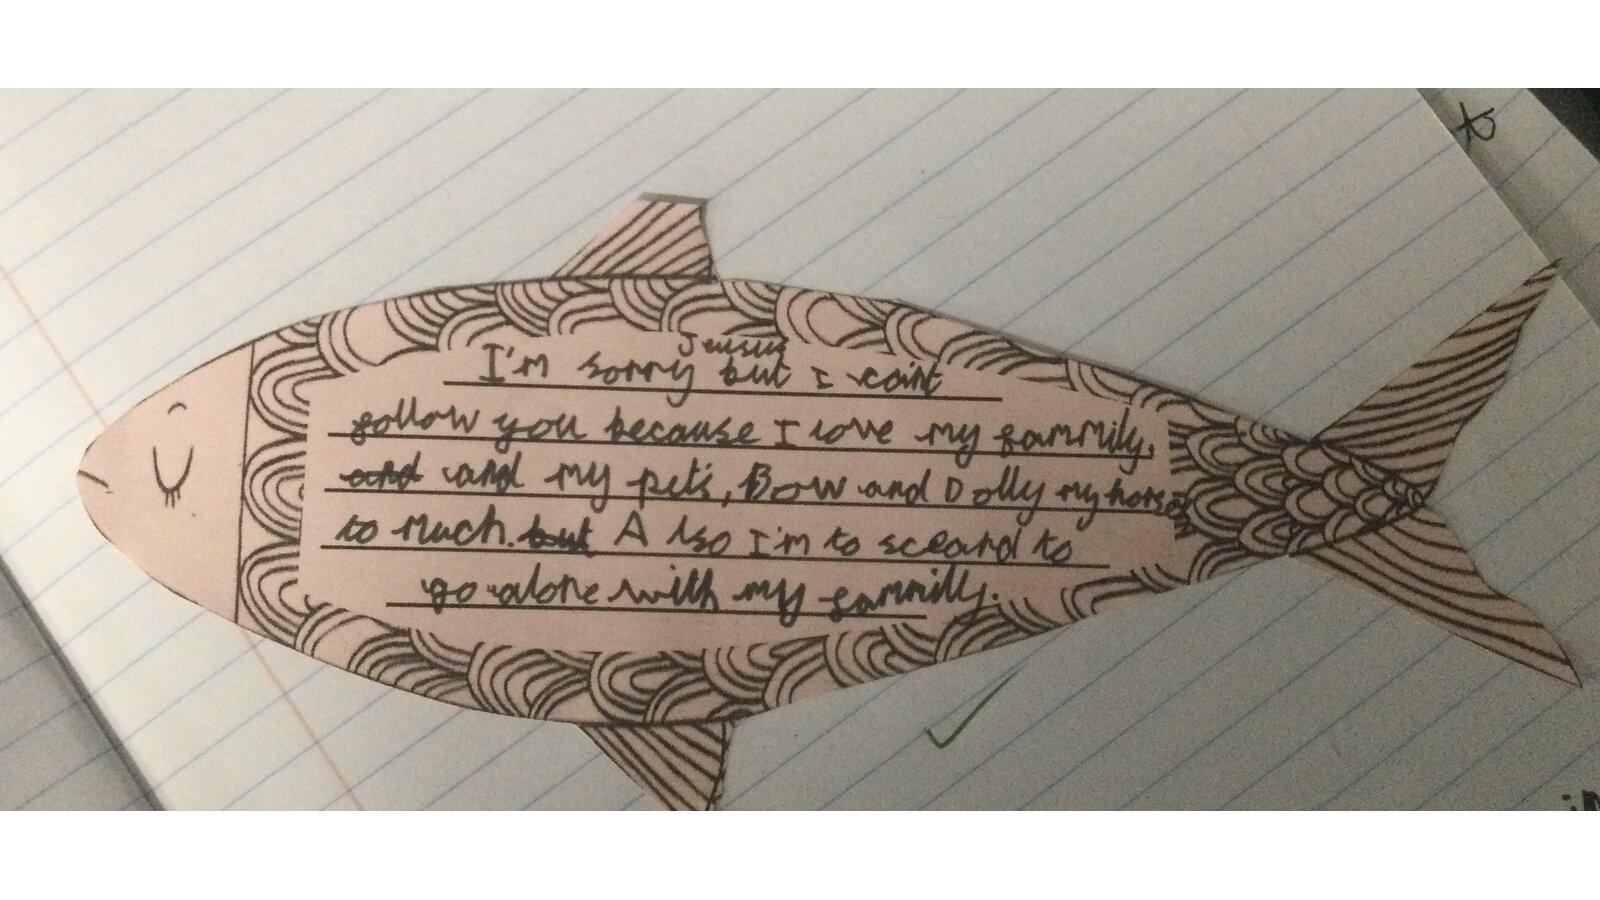 Jeusus
I'm sorry but I can't
follow you because I love my fammily,
and and my pet's, Bow and Dolly my horse
to much. but Also I'm to sceard to
go alone with my fammilly.